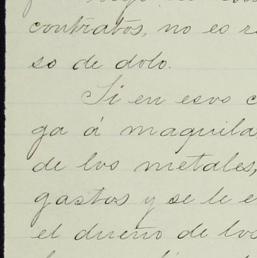 contratos, no es r
so de dolo.
Si en esos c
ga á maquila
de los metales,
gastos y se le e
el dueño de los